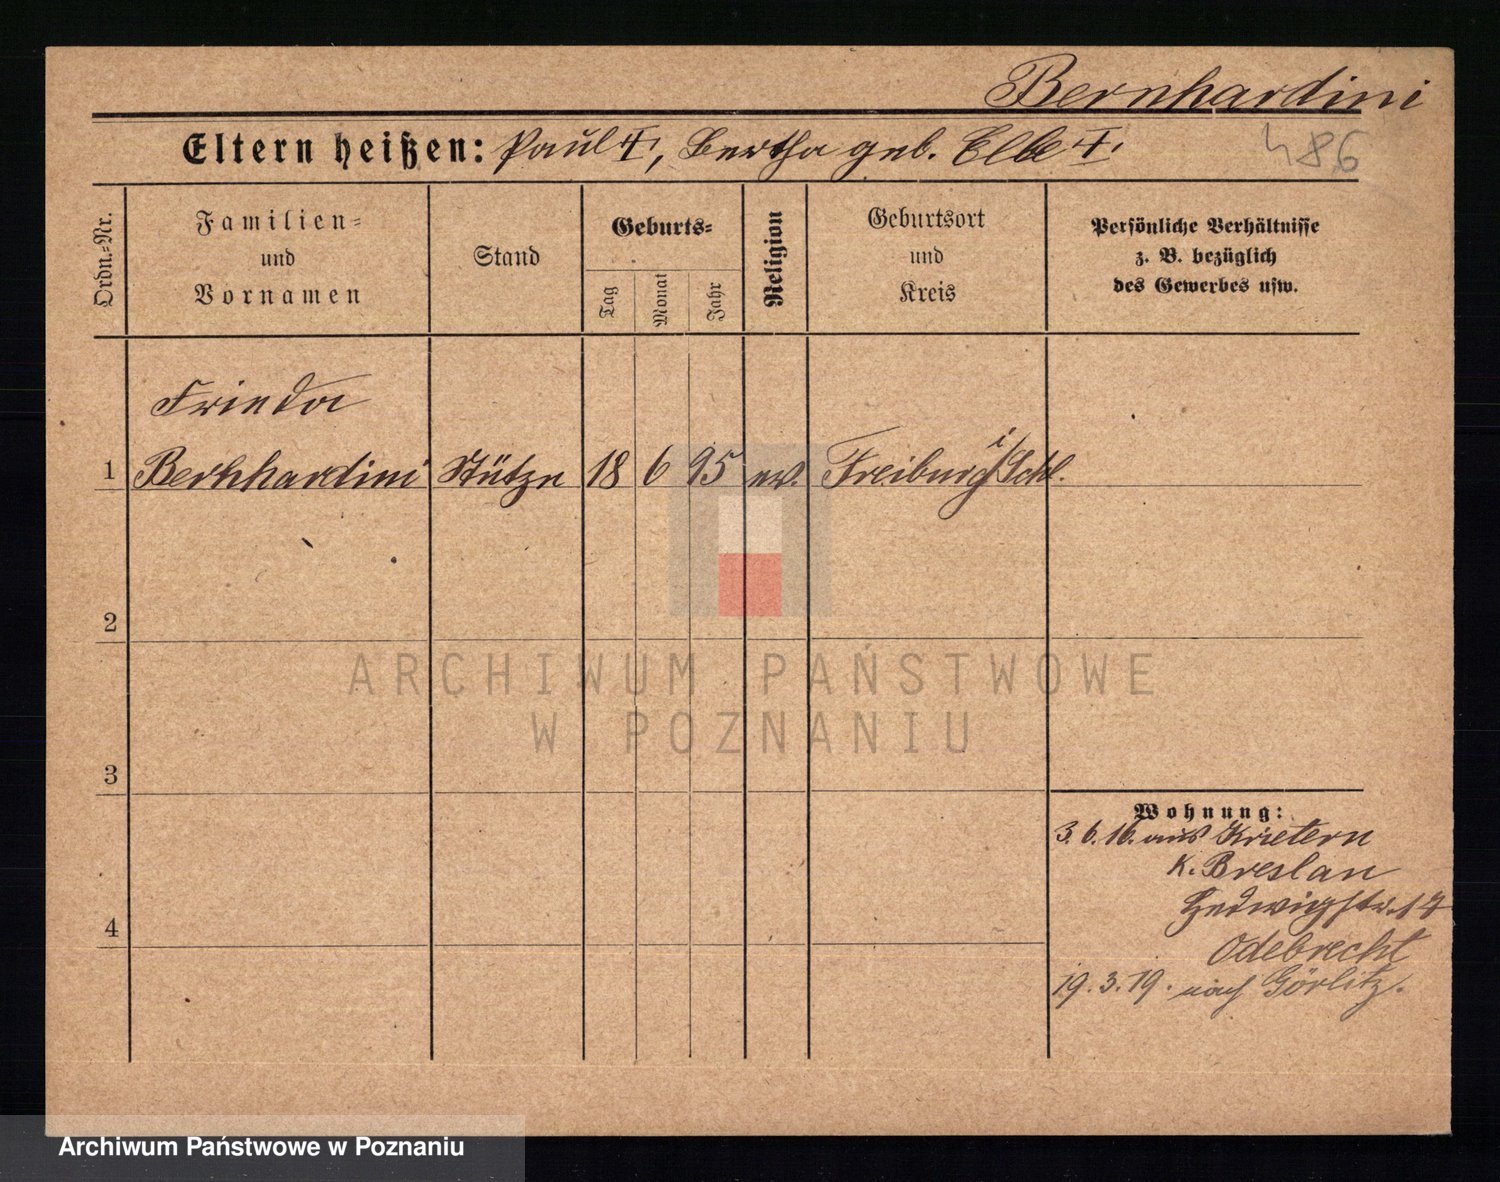 Bernhardini
Eltern heißen: Paul †, Bertha geb. Elbe †.
486
Ordn.=Nr.
Familien=
und
Vornamen
Stand
Geburts=
Tag
Monat
Jahr
Religion
Geburtsort
und
Kreis
Persönliche Verhältnisse
z. B. bezüglich
des Gewerbes usw.
Frieda
1 Bernhardini Stütze 18 6 95 ev. Freiburg i/Schl.
2
ARCHIWUM PAŃSTWOWE
W POZNANIU
3
Wohnung:
3.6.16. aus Krietern
K. Breslau
Hedwigstr. 17
4
Odebrecht
19.3.19. nach Görlitz.
Archiwum Państwowe w Poznaniu